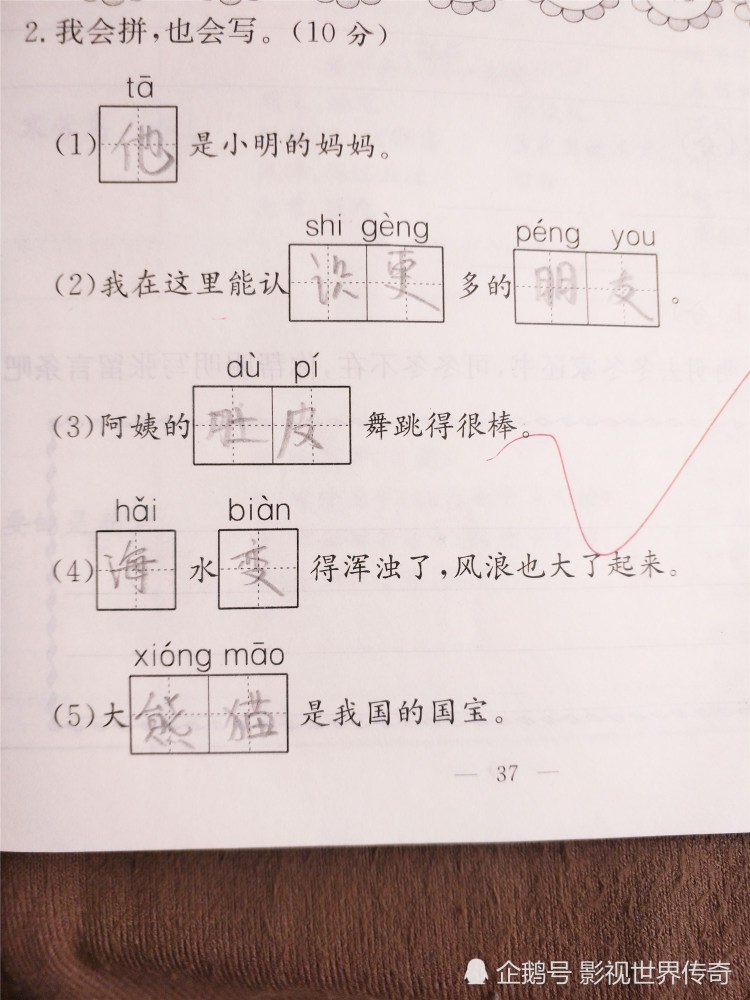 2.我会拼,也会写。(10分)
tā
(1)他是小明的妈妈。
shi gèng péng you
(2)我在这里能认识更多的朋友。
dù pí
(3)阿姨的肚皮舞跳得很棒。
hǎi biàn
(4)海水变得浑浊了,风浪也大了起来。
xióng māo
(5)大熊猫是我国的国宝。
— 37 —
企鹅号 影视世界传奇